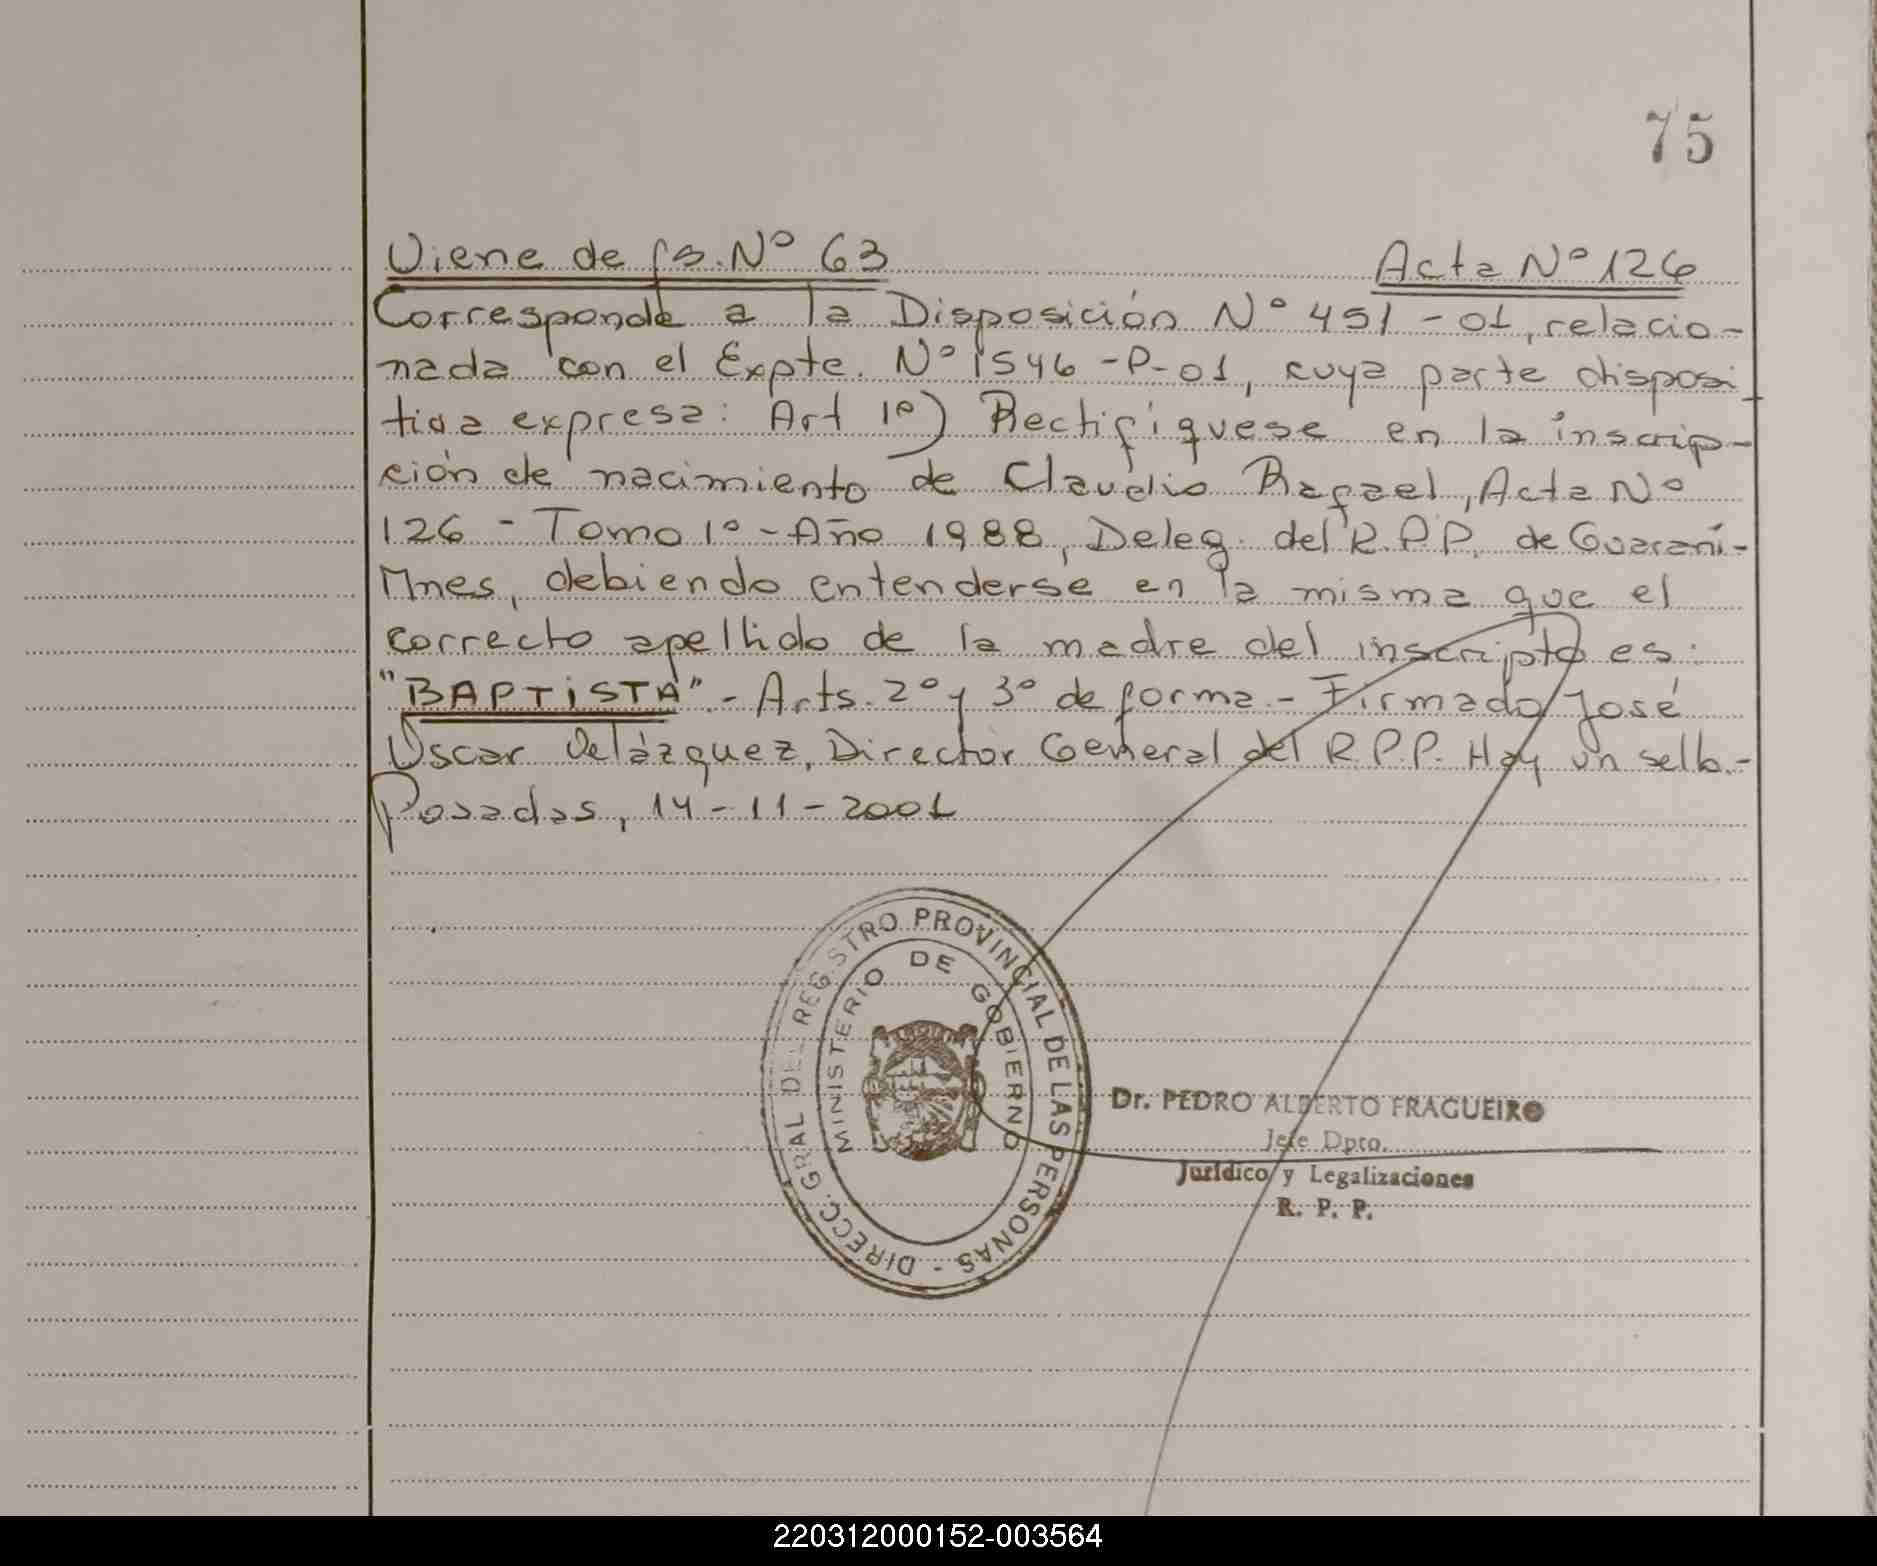 75
Viene de fs. Nº 63 Acta Nº 126
Corresponde a la Disposición Nº 451-01, relacio-
nada con el Expte. Nº 1546-P-01, cuya parte disposi
tiva expresa: Art 1º) Rectifíquese en la inscrip-
ción de nacimiento de Claudio Rafael, Acta Nº
126 - Tomo 1º - Año 1988, Deleg. del R.P.P. de Guaraní-
Mnes, debiendo entenderse en la misma que el
correcto apellido de la madre del inscripto es:
"BAPTISTA".- Arts. 2º y 3º de forma.- Firmado José
Oscar Velázquez, Director General del R.P.P. Hay un sello.-
Posadas, 14-11-2001
DIRECC. GRAL DEL REGISTRO PROVINCIAL DE LAS PERSONAS -
MINISTERIO DE GOBIERNO
Dr. PEDRO ALBERTO FRAGUEIRO
Jefe Dpto.
Jurídico y Legalizaciones
R. P. P.
220312000152-003564